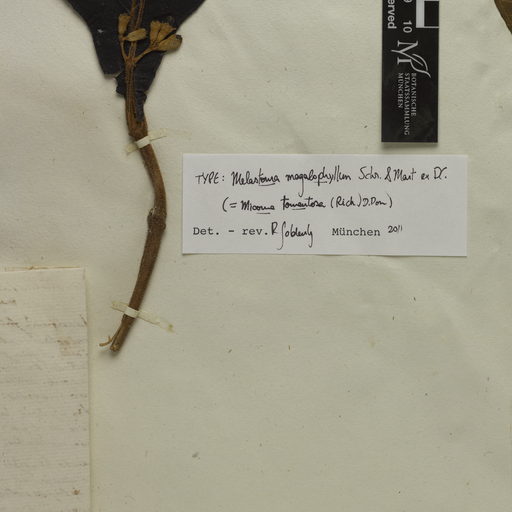 9 10
erved
BOTANISCHE
STAATSSAMMLUNG
MÜNCHEN
TYPE: Melastoma megalophyllum Schr. & Mart ex DC.
(= Miconia tomentosa (Rich.) D.Don)
Det. - rev. R. Goldenberg München 2011